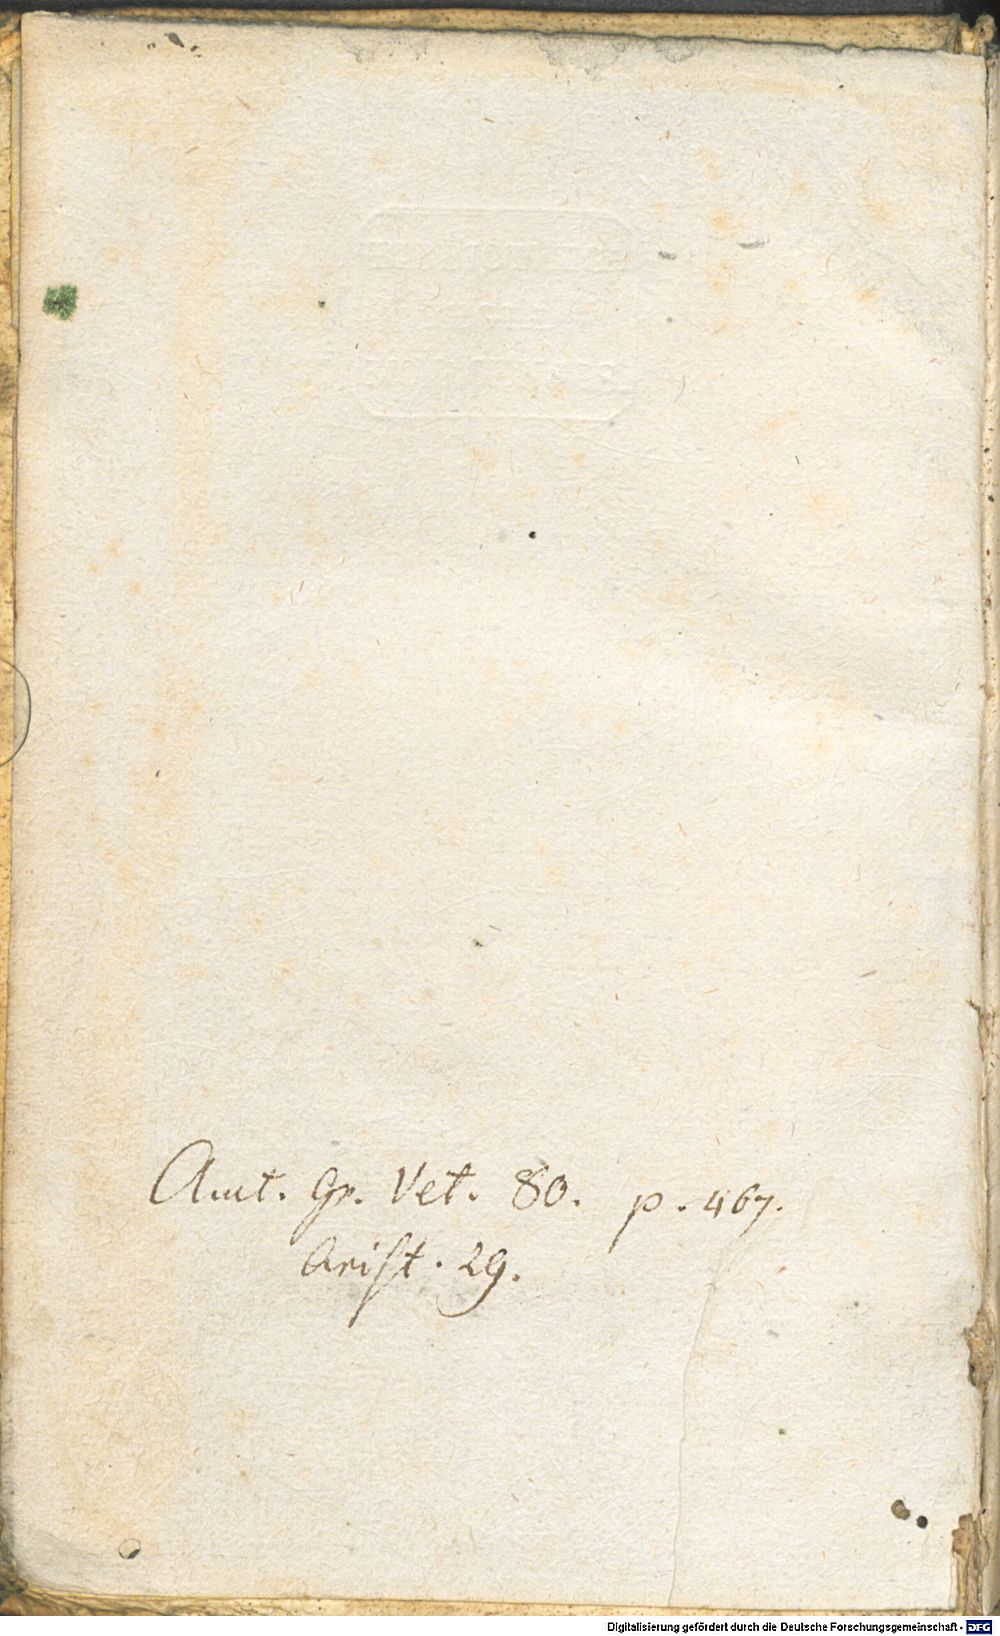 Aut. Gr. Vet. 80. p. 467.
Arist. 29.
Digitalisierung gefördert durch die Deutsche Forschungsgemeinschaft - DFG